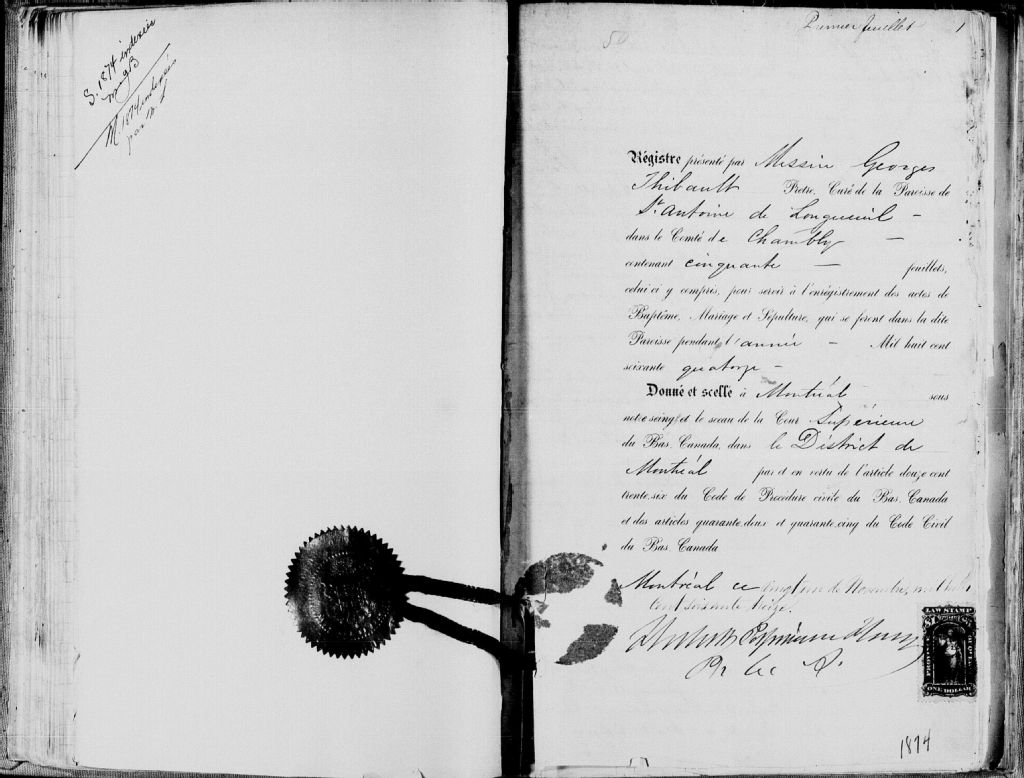 S. 1874 indexée
M. 1874 indexés
par
Premier feuillet 1
50
Régistre présenté par Messire Georges
Thibault Prêtre, Curé de la Paroisse de
St. Antoine de Longueuil –
dans le Comté de Chambly –
contenant cinquante – feuillets,
celui-ci y compris, pour servir à l'enrégistrement des actes de
Baptême, Mariage et Sépulture, qui se feront dans la dite
Paroisse pendant l'année – Mil huit cent
soixante quatorze –
Donné et scellé à Montréal sous
notre seing et le sceau de la Cour Supérieure
du Bas Canada, dans le District de
Montréal par et en vertu de l'article douze cent
trente-six du Code de Procédure civile du Bas Canada
et des articles quarante-deux et quarante-cinq du Code Civil
du Bas Canada
Montréal ce vingt un de Novembre, mil huit
cent soixante treize.
LAW STAMP
ONE DOLLAR
1874